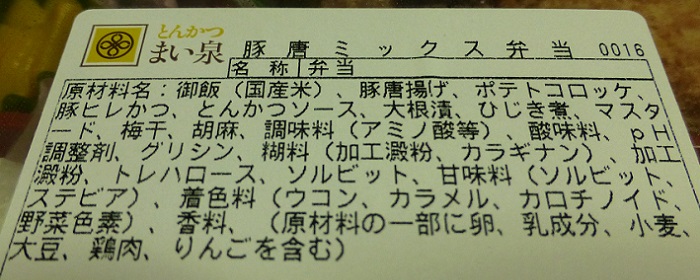 とんかつ
まい泉
豚唐ミックス弁当 0016
名称 弁当
原材料名：御飯（国産米）、豚唐揚げ、ポテトコロッケ、
豚ヒレかつ、とんかつソース、大根漬、ひじき煮、マスタ
ード、梅干、胡麻、調味料（アミノ酸等）、酸味料、pH
調整剤、グリシン、糊料（加工澱粉、カラギナン）、加工
澱粉、トレハロース、ソルビット、甘味料（ソルビット、
ステビア）、着色料（ウコン、カラメル、カロチノイド、
野菜色素）、香料、（原材料の一部に卵、乳成分、小麦、
大豆、鶏肉、りんごを含む）